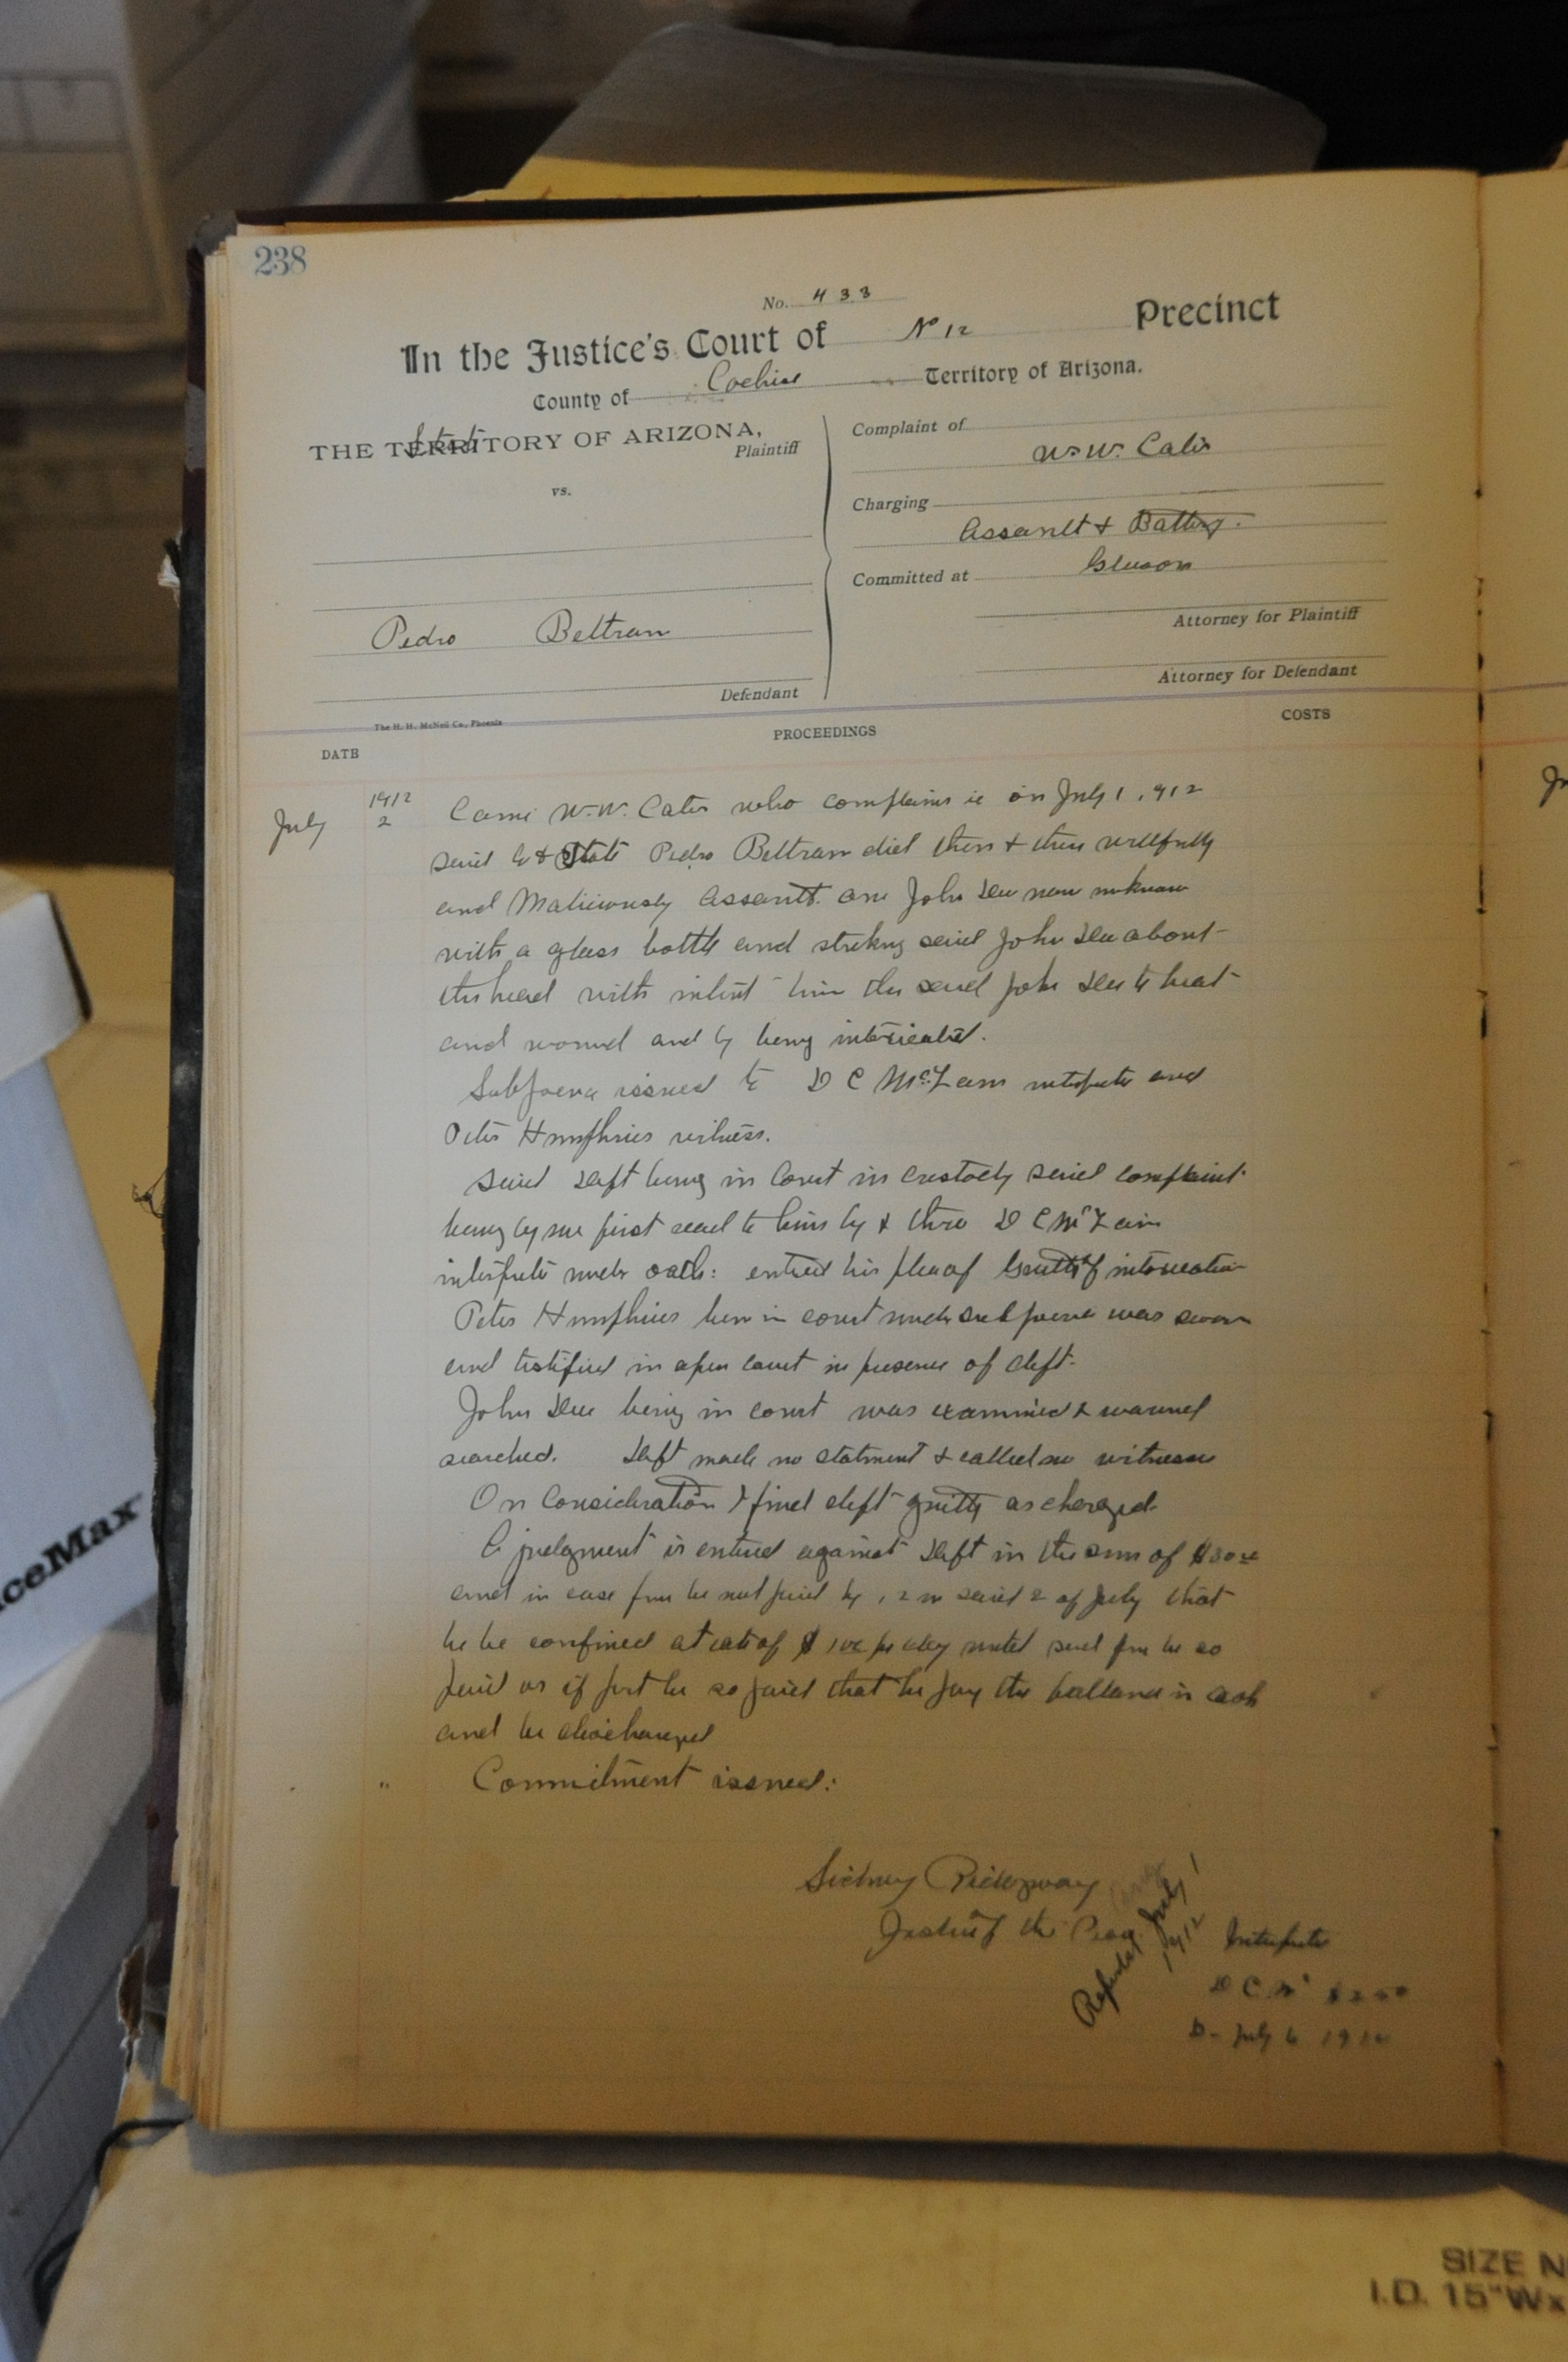 238
No. 433
In the Justice's Court of No 12 Precinct
County of Cochise Territory of Arizona.
State
THE TERRITORY OF ARIZONA,
Plaintiff
vs.
Pedro Beltran
Defendant
Complaint of
W.W. Cates
Charging
Assault & Battery.
Committed at Gleeson
Attorney for Plaintiff
Attorney for Defendant
The H. H. McNeil Co., Phoenix
DATE PROCEEDINGS COSTS
July 1912 2 Came W.W. Cates who complains ie on July 1, 912
said Co & State Pedro Beltran did then & there willfully
and Maliciously assault one John Doe name unknown
with a glass bottle and striking said John Doe about
the head with intent him the said John Doe to beat
and wound and by being intoxicated.
Subpoena issued to D C McLain and
Peter Humphries witness.
Said Deft being in Court in custody said complaint
being by me first read to him by & thro D C McLain
under oath: entered his plea of Guilty of intoxication
Peter Humphries been in court under subpoena was sworn
and testified in open court in presence of deft.
John Doe being in court was examined & wound
searched. Deft made no statment & called no witnesses
On Consideration I find deft guilty as charged
A judgment is entered against Deft in the sum of $30
and in case fine be not paid by 12 m said 2 of July that
he be confined at rate of $1 per day until said fine be so
paid or if part be so paid that he pay the ballance in cash
and be discharged
" Commitment issued:
Sidney Ridgway
Justice of the Peace
July
1912
D C Mc
D- July 6 191
ceMax
SIZE N
I.D. 15"Wx